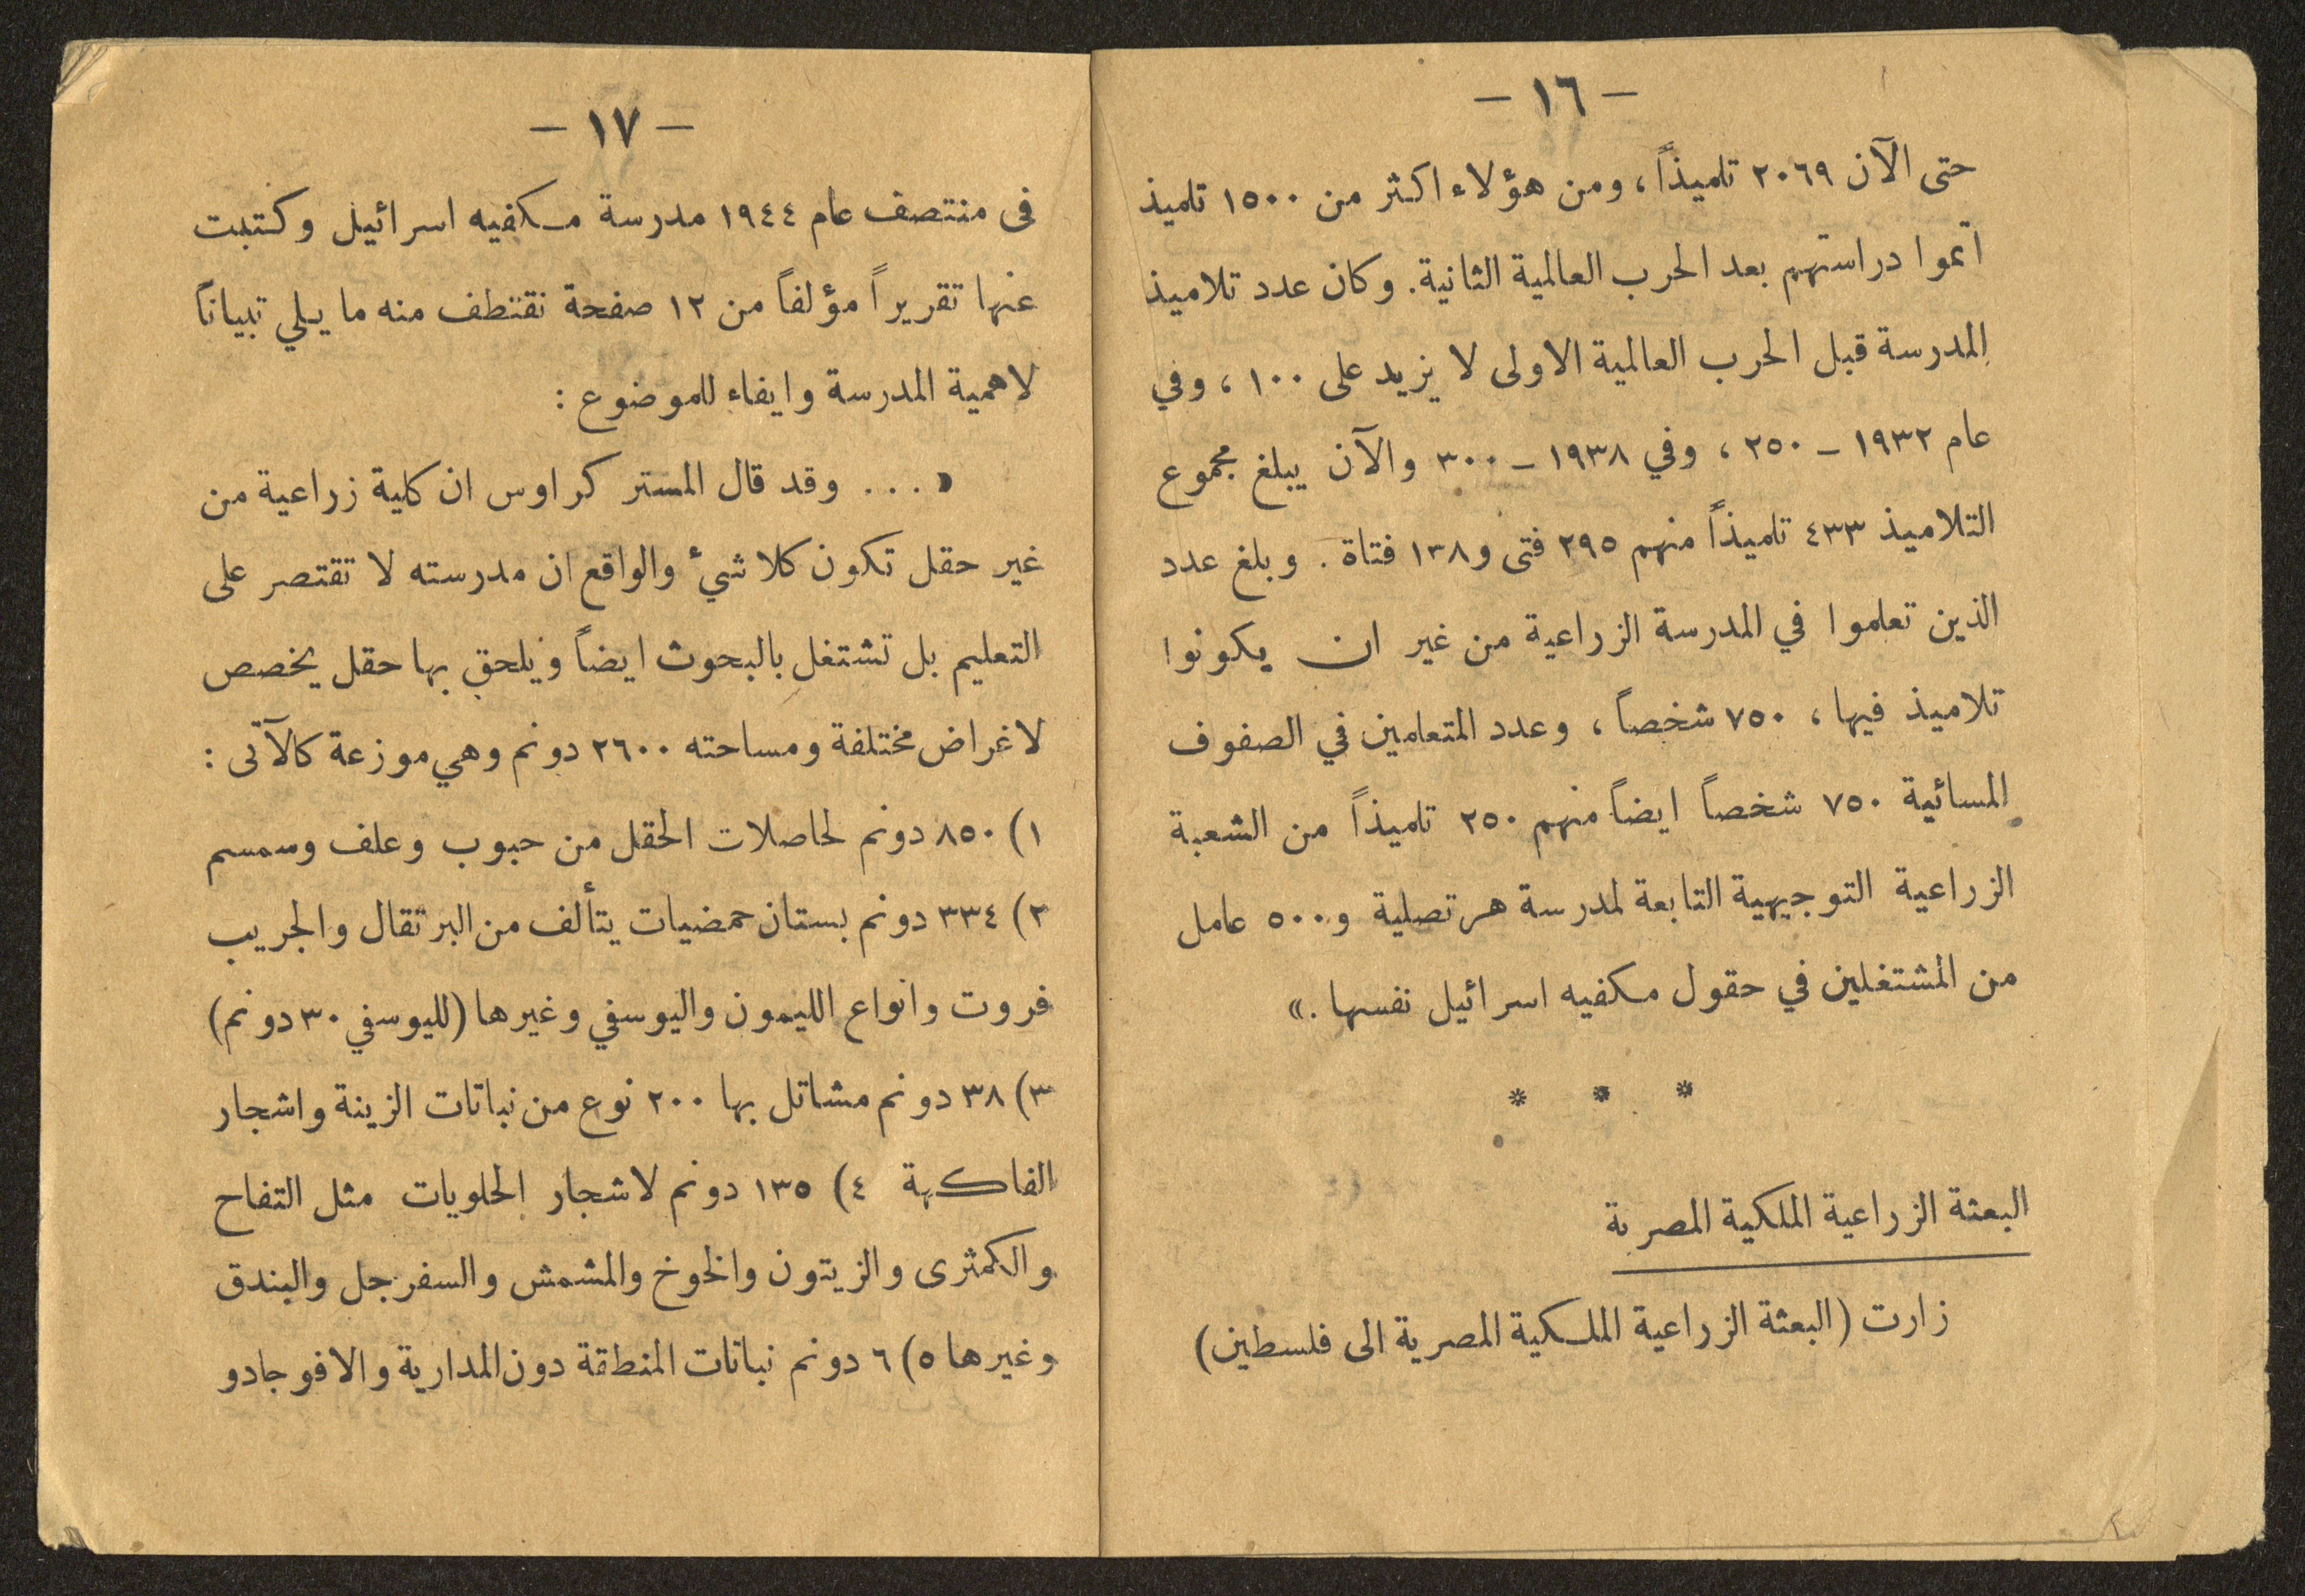 — ١٦ —
حتى الآن ٢٠٦٩ تلميذاً، ومن هؤلاء اكثر من ١٥٠٠ تلميذ
اتموا دراستهم بعد الحرب العالمية الثانية. وكان عدد تلاميذ
المدرسة قبل الحرب العالمية الاولى لا يزيد على ١٠٠، وفي
عام ١٩٣٢ – ٢٥٠، وفي ١٩٣٨ – ٣٠٠ والآن يبلغ مجموع
التلاميذ ٤٣٣ تلميذاً منهم ٢٩٥ فتى و١٣٨ فتاة. وبلغ عدد
الذين تعلموا في المدرسة الزراعية من غير ان يكونوا
تلاميذ فيها، ٧٥٠ شخصاً، وعدد المتعلمين في الصفوف
المسائية ٧٥٠ شخصاً ايضاً منهم ٢٥٠ تلميذاً من الشعبة
الزراعية التوجيهية التابعة لمدرسة هرتصلية و٥٠٠ عامل
من المشتغلين في حقول مكفيه اسرائيل نفسها.»
* * *
البعثة الزراعية الملكية المصرية
زارت (البعثة الزراعية الملكية المصرية الى فلسطين)
— ١٧ —
فى منتصف عام ١٩٤٤ مدرسة مكفيه اسرائيل وكتبت
عنها تقريراً مؤلفاً من ١٢ صفحة نقتطف منه ما يلي تبياناً
لاهمية المدرسة وايفاء للموضوع :
« ... وقد قال المستر كراوس ان كلية زراعية من
غير حقل تكون كلا شئ والواقع ان مدرسته لا تقتصر على
التعليم بل تشتغل بالبحوث ايضاً ويلحق بها حقل يخصص
لاغراض مختلفة ومساحته ٢٦٠٠ دونم وهي موزعة كالآتى :
١) ٨٥٠ دونم لحاصلات الحقل من حبوب وعلف وسمسم
٢) ٣٣٤ دونم بستان حمضيات يتألف من البرتقال والجريب
فروت وانواع الليمون واليوسفي وغيرها (لليوسفي ٣٠ دونم)
٣) ٣٨ دونم مشاتل بها ٢٠٠ نوع من نباتات الزينة واشجار
الفاكهة ٤) ١٣٥ دونم لاشجار الحلويات مثل التفاح
والكمثرى والزيتون والخوخ والمشمش والسفرجل والبندق
وغيرها ٥) ٦ دونم نباتات المنطقة دون المدارية والافوجادو